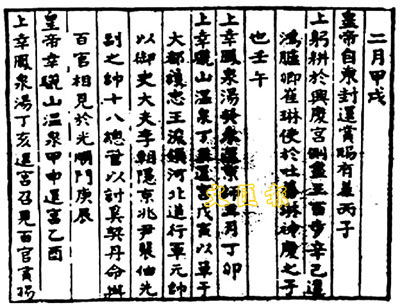 二月甲戌
皇帝自東封還賞賜有差丙子
上躬耕於興慶宮側盡三百步辛巳遣
鴻臚卿崔琳使於吐蕃琳神慶之子
也壬午
上幸鳳泉湯癸未還京師月丁卯
上幸驪山溫泉丁還宮戊寅以單于
大都護忠王浚領河北道行軍元帥
以御史大夫李朝隱京兆尹裴伷先
副之帥十八總管以討奚契丹命與
百官相見於光順門庚辰
皇帝幸驪山溫泉甲申還宮乙酉
上幸鳳泉湯丁亥還宮召見百官賞賜
文匯報